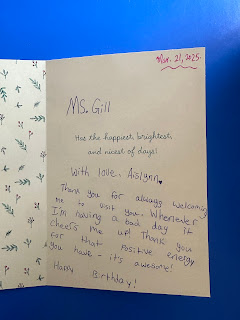 Mar. 21, 2025.
Ms. Gill
Has the happiest, brightest,
and nicest of days!
With love, Aislynn
Thank you for always welcoming
me to visit you. Whenever
I'm having a bad day it
cheers me up! Thank you
for that positive energy
you have - it's awesome!
Happy Birthday!